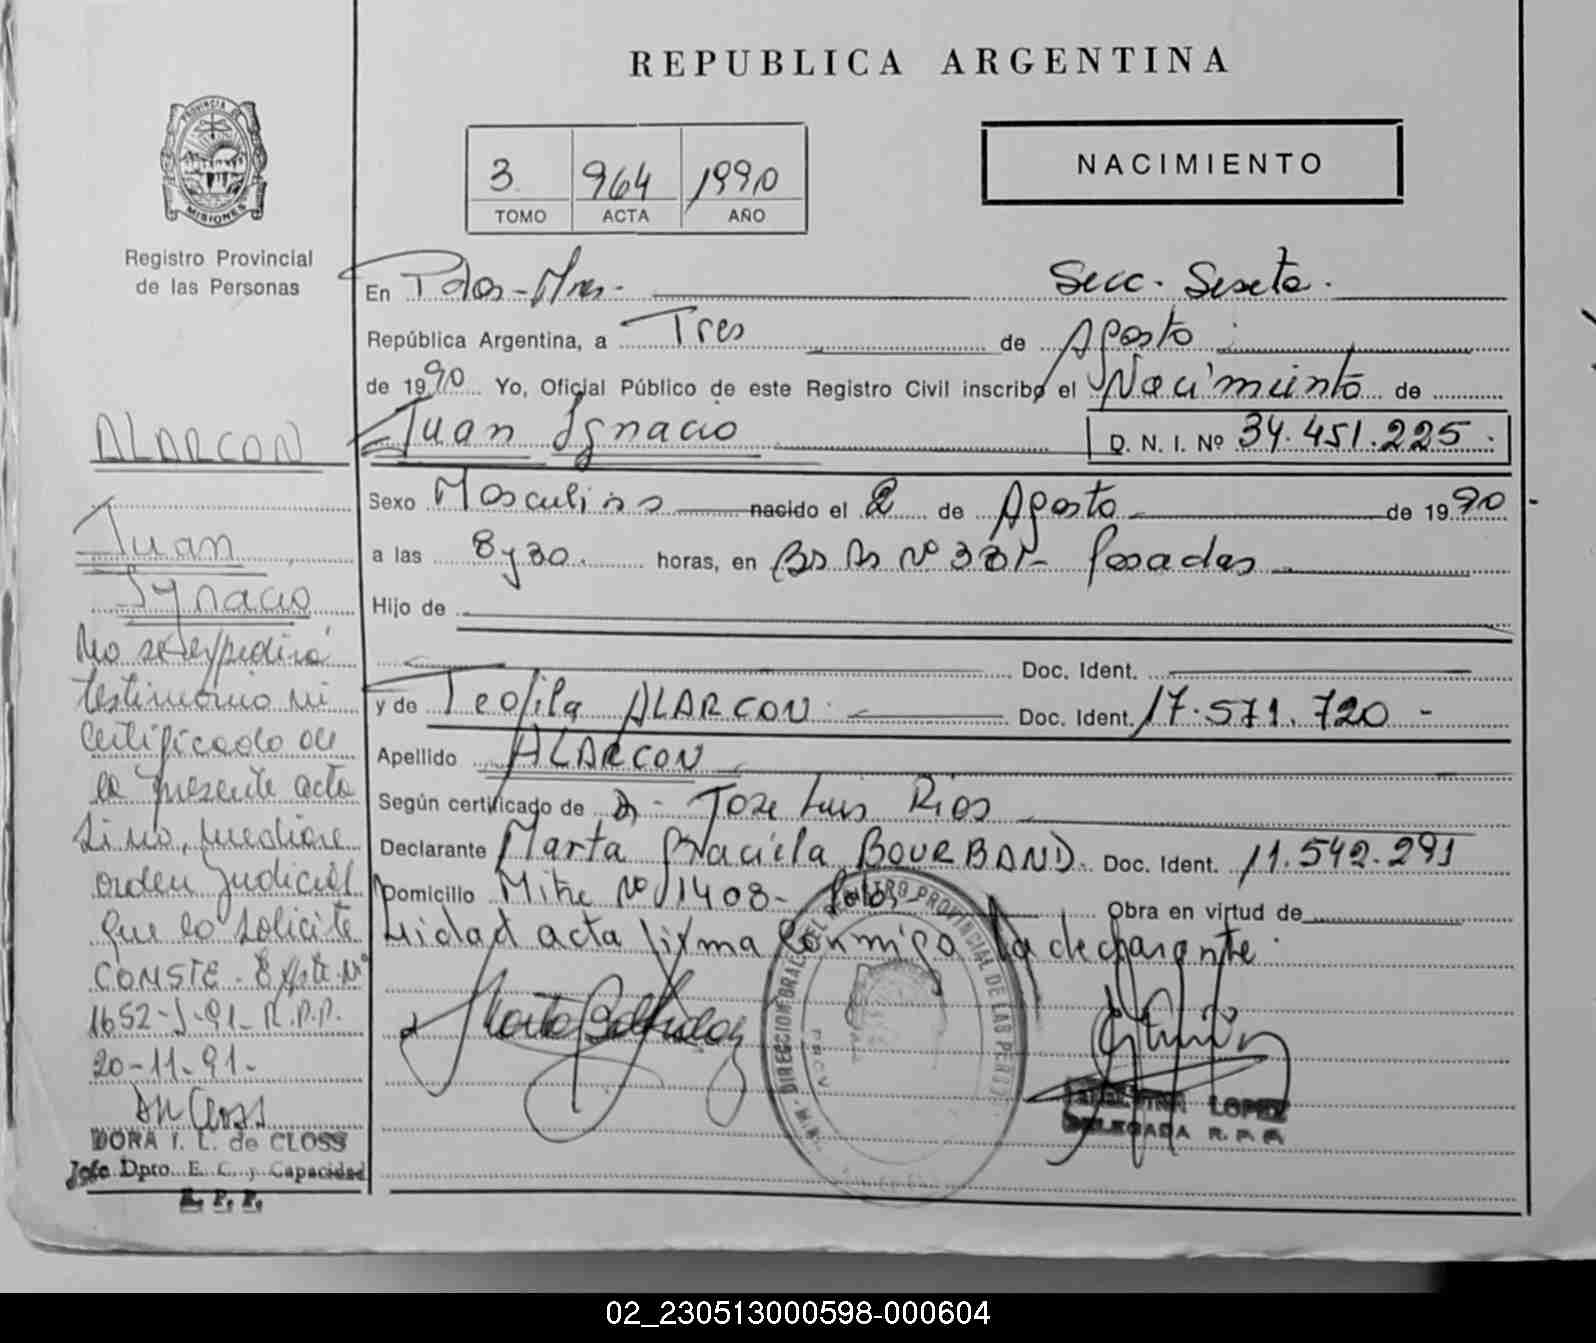 REPUBLICA ARGENTINA
PROVINCIA DE
MISIONES
Registro Provincial
de las Personas
3 964 1990
TOMO ACTA AÑO
NACIMIENTO
En Pdas-Mnes- Secc. Sexta.
República Argentina, a Tres de Agosto
de 1990 Yo, Oficial Público de este Registro Civil inscribo el Nacimiento de
Juan Ignacio D. N. I. Nº 34.451.225.
Sexo Masculino nacido el 2 de Agosto de 1990 -
a las 8 y 30. horas, en Bs As Nº 331- Posadas
Hijo de
Doc. Ident.
y de Teofila ALARCON. Doc. Ident. 17.571.720 -
Apellido ALARCON
Según certificado de D. Jose Luis Rios
Declarante Marta Graciela BOURBAND. Doc. Ident. 11.542.291
Domicilio Mitre Nº 1408- Pdas Obra en virtud de
Leida el acta firma conmigo la declarante.
ALARCON
Juan
Ignacio
No se expedirá
testimonio ni
certificado de
la presente acta
si no, mediare
orden judicial
que lo solicite
CONSTE. Expte. Nº
1652-J-91- R.P.P.
20-11-91-
DORA I. L. de CLOSS
Jefe Dpto. E. C. y Capacidad
R. P. P.
LOPEZ
DELEGADA R. P. P.
02_230513000598-000604